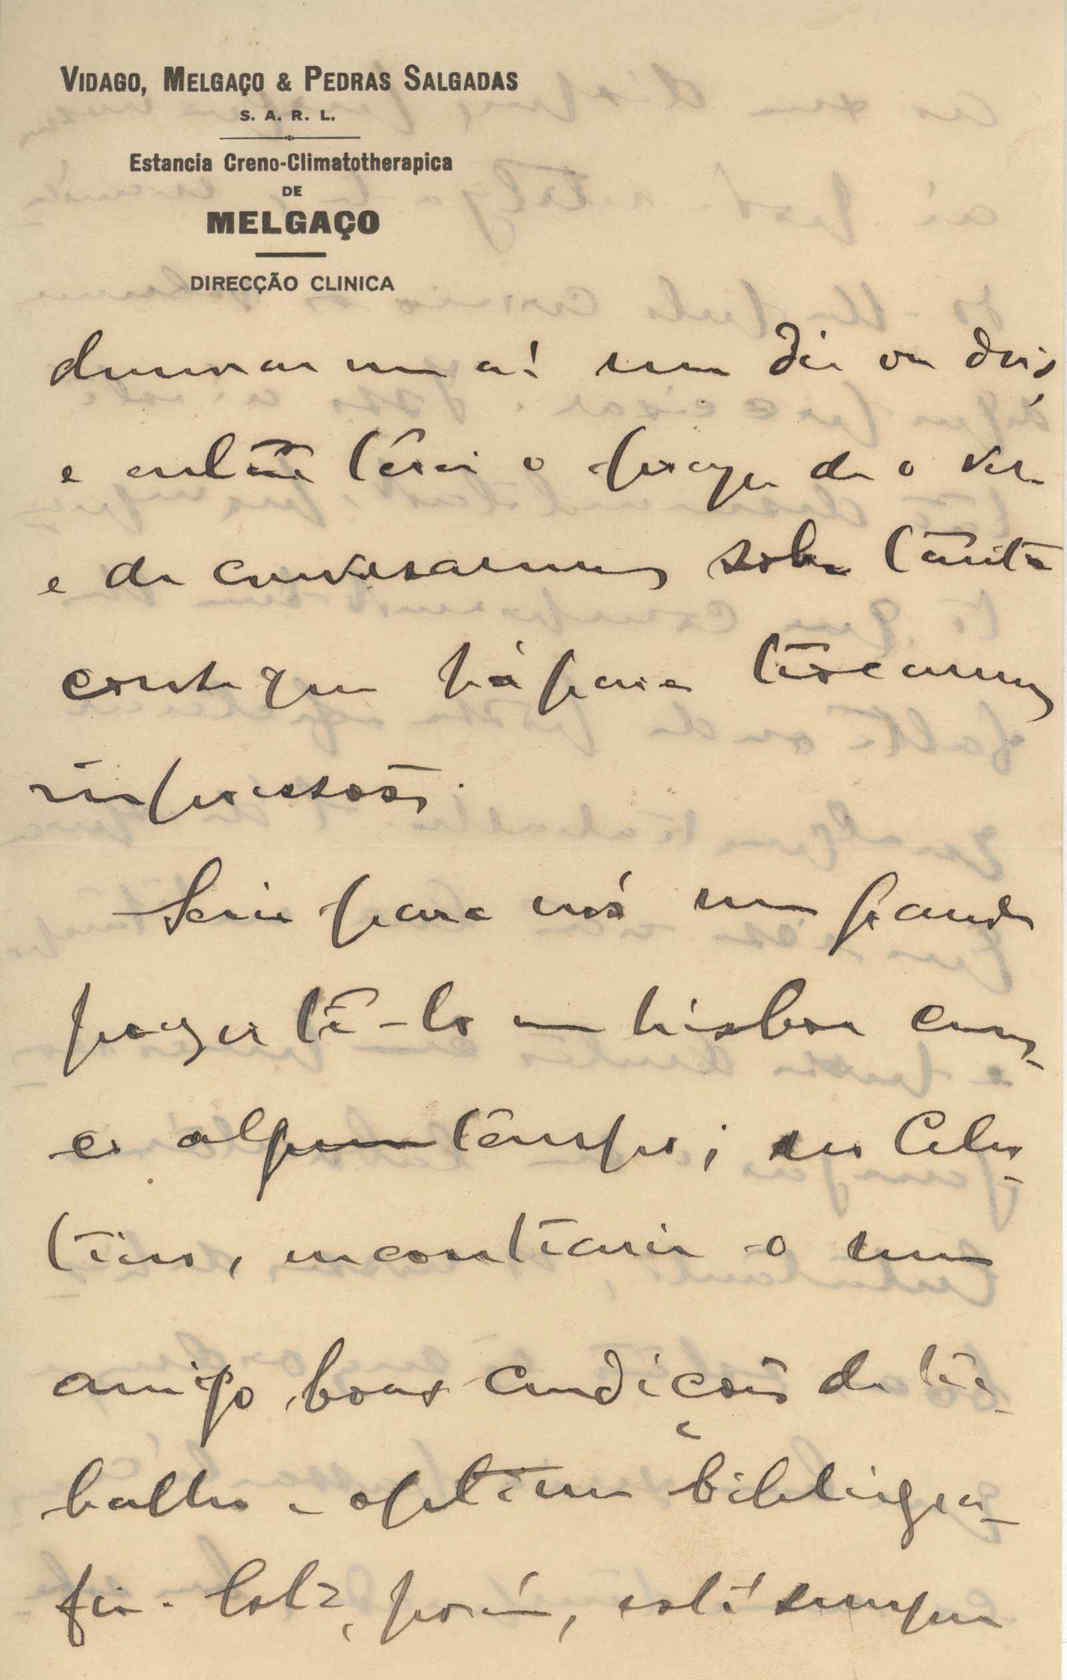 VIDAGO, MELGAÇO & PEDRAS SALGADAS
S. A. R. L.
Estancia Creno-Climatotherapica
DE
MELGAÇO
DIRECÇÃO CLINICA
aí um dia ou dois
e então terei o prazer de o ver
e de conversarmos sobre tanta
cousa que há para trocarmos
impressões.
Seria para nós um grande
prazer tê-lo em Lisboa
algum tempo; no Celes-
tino, encontraria o um
amigo, boas condições de tra-
balho e optima bibliogra-
fia. porém, está sempre